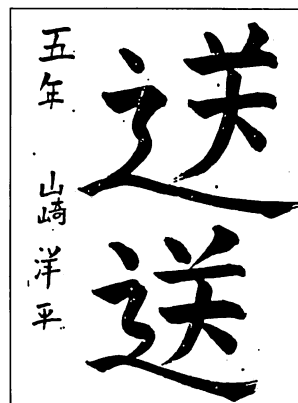 送送
五年 山崎洋平